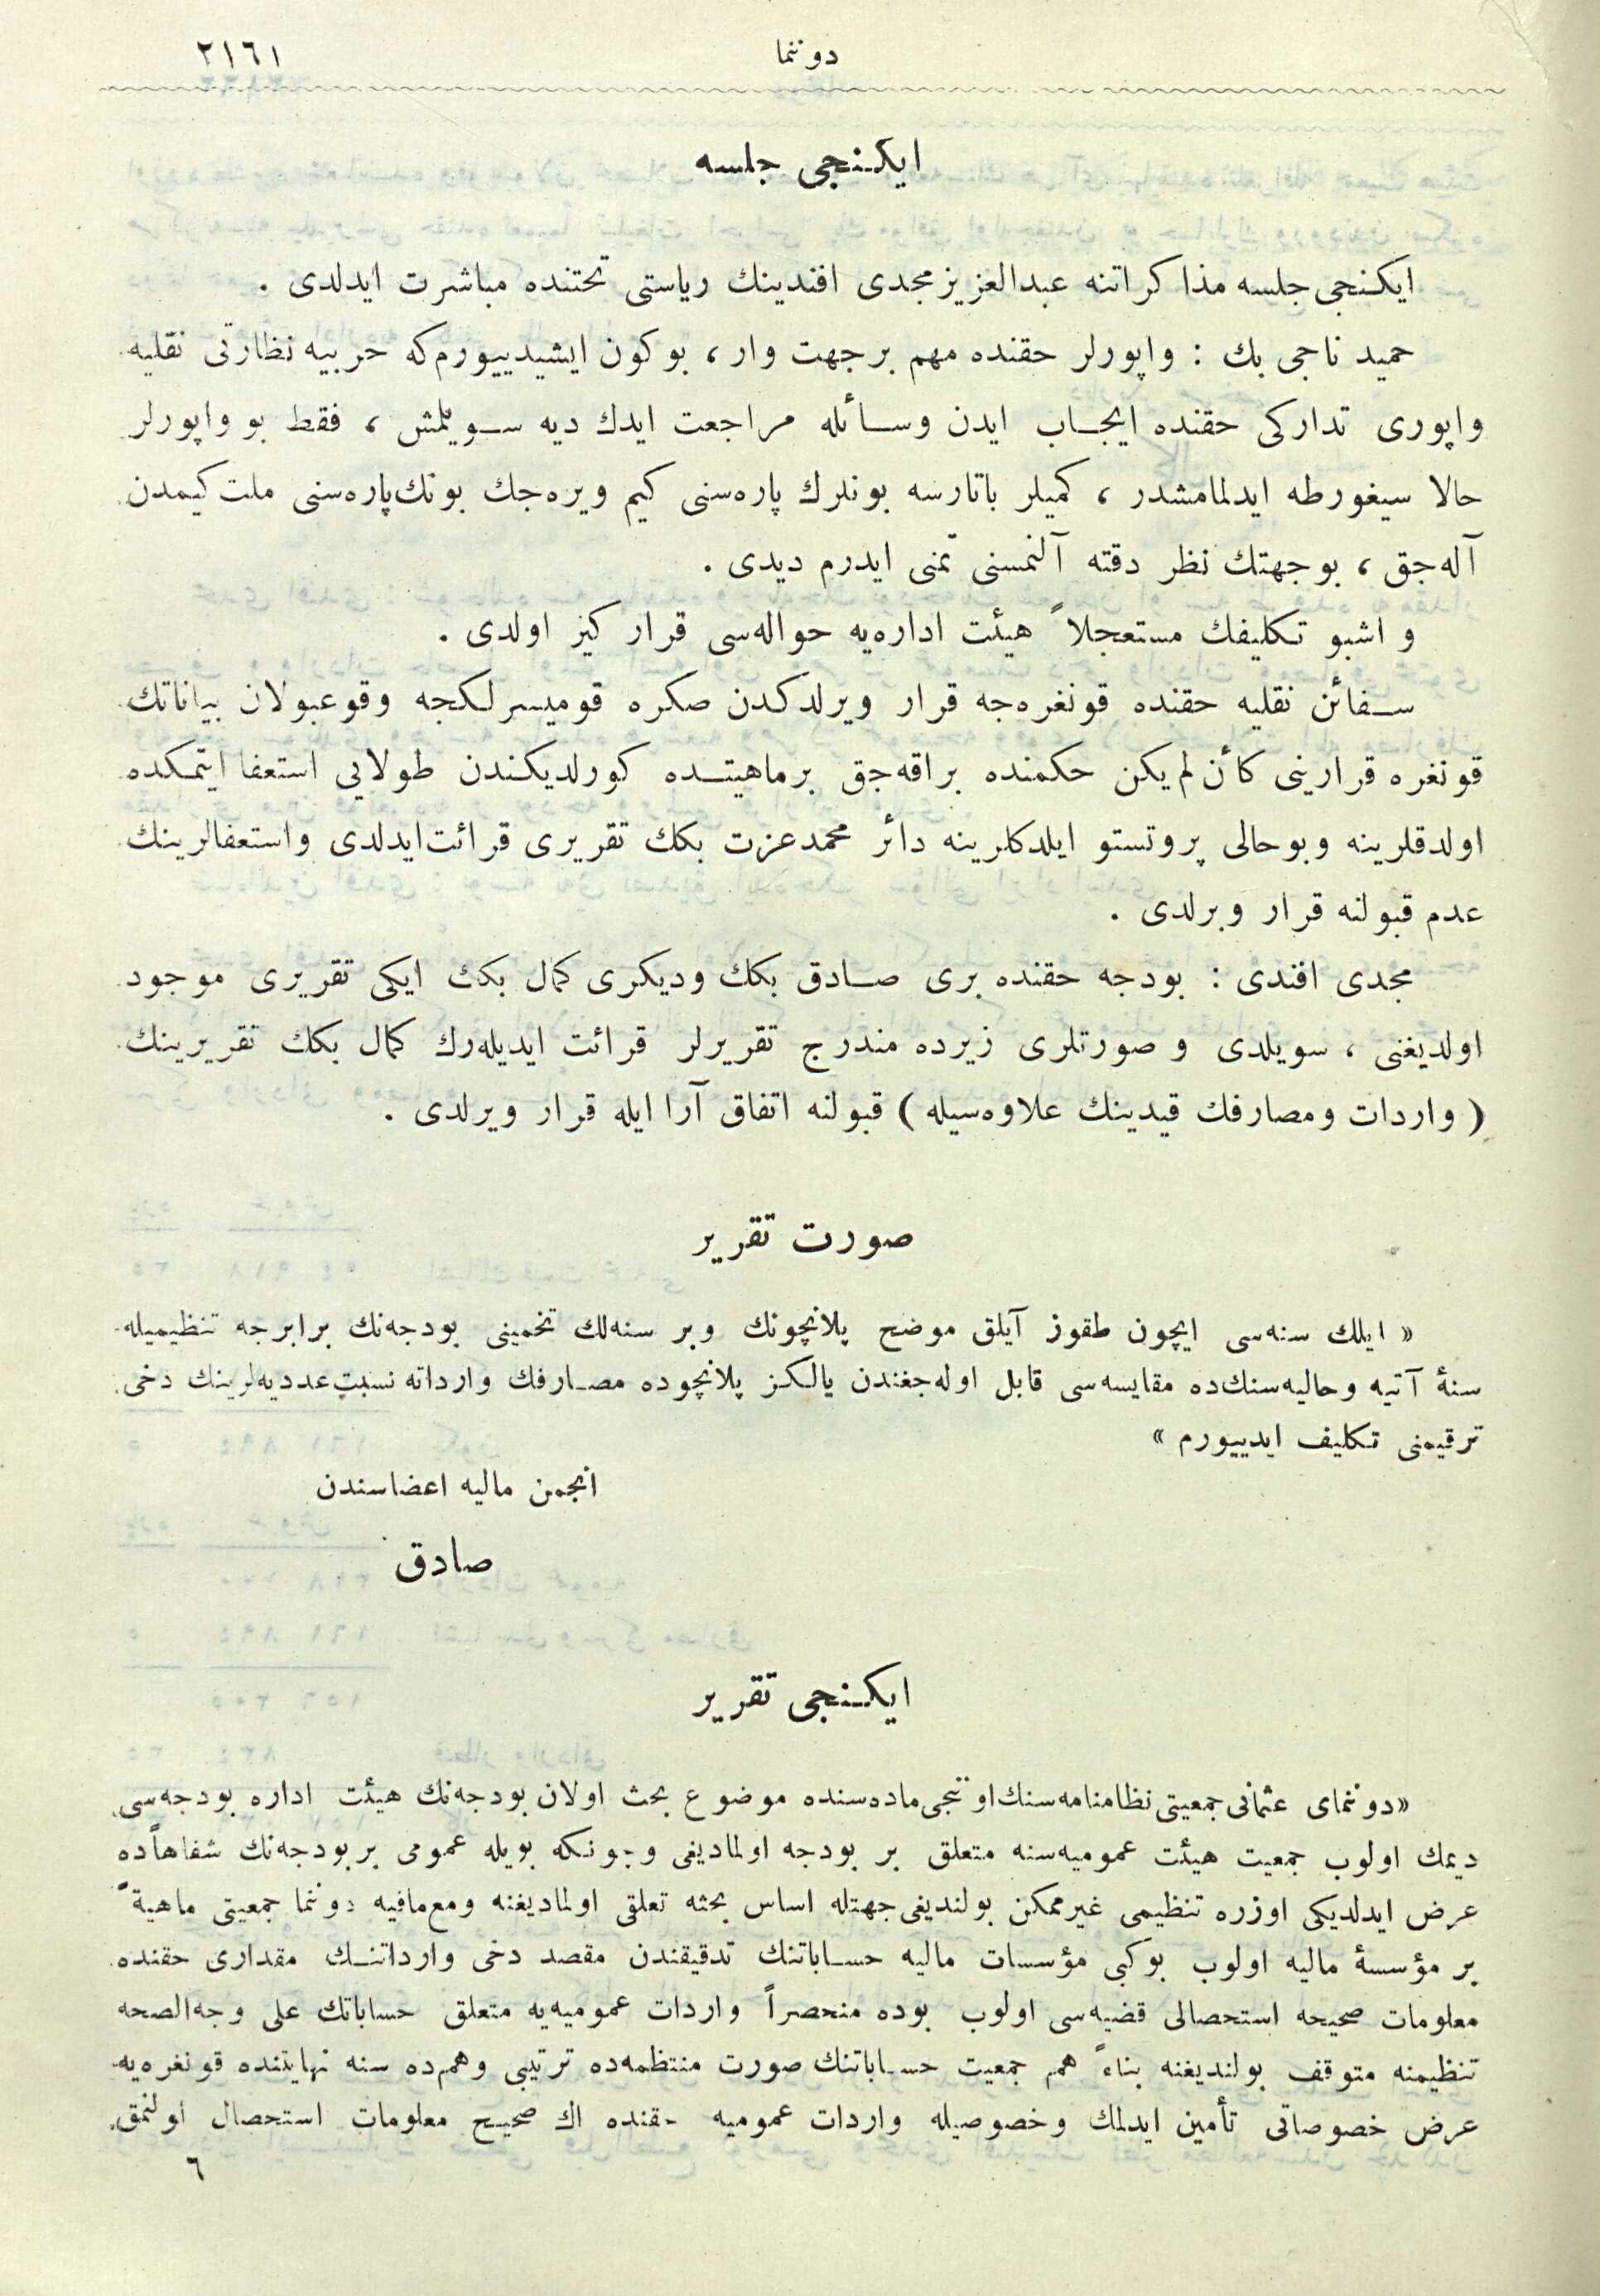 دوننما
٢١٦١
ايكنجى جلسه
ايكنجى جلسه مذاكراتنه عبدالعزيز مجدى افندينك رياستى تحتنده مباشرت ايدلدى .
حميد ناجى بك : واپورلر حقنده مهم برجهت وار ، بوكون ايشيدييورم‌كه حربيه نظارتى نقليه
واپورى تداركى حقنده ايجاب ايدن وسائله مراجعت ايدك ديه سويلمش ، فقط بو واپورلر
حالا سيغورطه ايدلمامشدر ، كميلر باتارسه بونلرك پاره‌سنى كيم ويره‌جك بونك پاره‌سنى ملت كيمدن
آله‌جق ، بوجهتك نظر دقته آلنمسنى تمنى ايدرم ديدى .
و اشبو تكليفك مستعجلاً هيئت اداره‌يه حواله‌سى قرار كير اولدى .
سفائن نقليه حقنده قونغره‌جه قرار ويرلدكدن صكره قوميسرلكجه وقوعبولان بياناتك
قونغره قرارينى كأن لم يكن حكمنده براقه‌جق برماهيتده كورلديكندن طولايى استعفا ايتمكده
اولدقلرينه وبوحالى پروتستو ايلدكلرينه دائر محمدعزت بكك تقريرى قرائت ايدلدى واستعفالرينك
عدم قبولنه قرار ويرلدى .
مجدى افندى : بودجه حقنده برى صادق بكك وديكرى كمال بكك ايكى تقريرى موجود
اولديغنى ، سويلدى و صورتلرى زيرده مندرج تقريرلر قرائت ايديله‌رك كمال بكك تقريرينك
( واردات ومصارفك قيدينك علاوه‌سيله ) قبولنه اتفاق آرا ايله قرار ويرلدى .
صورت تقرير
« ايلك سنه‌سى ايچون طقوز آيلق موضح پلانچونك وبر سنه‌لك تخمينى بودجه‌نك برابرجه تنظيميله
سنۀ آتيه وحاليه‌سنك‌ده مقايسه‌سى قابل اوله‌جغندن يالكز پلانچوده مصارفك وارداته نسبت عدديه‌لرينك دخى
ترقيمنى تكليف ايدييورم »
انجمن ماليه اعضاسندن
صادق
ايكنجى تقرير
«دوننماى عثمانى جمعيتى نظامنامه‌سنك اوننجى ماده‌سنده موضوع بحث اولان بودجه‌نك هيئت اداره بودجه‌سى
ديمك اولوب جمعيت هيئت عموميه‌سنه متعلق بر بودجه اولماديغى وچونكه بويله عمومى بربودجه‌نك شفاهاًده
عرض ايدلديكى اوزره تنظيمى غيرممكن بولنديغى جهتله اساس بحثه تعلقى اولماديغنه ومع‌مافيه دوننما جمعيتى ماهيةً
بر مؤسسۀ ماليه اولوب بوكبى مؤسسات ماليه حساباتنك تدقيقندن مقصد دخى وارداتنك مقدارى حقنده
معلومات صحيحه استحصالى قضيه‌سى اولوب بوده منحصراً واردات عموميه‌يه متعلق حساباتك على وجه‌الصحه
تنظيمنه متوقف بولنديغنه بناءً هم جمعيت حساباتنك صورت منتظمه‌ده ترتيبى وهم‌ده سنه نهايتنده قونغره‌يه
عرض خصوصاتى تأمين ايدلمك وخصوصيله واردات عموميه حقنده اك صحيح معلومات استحصال اولنمق
٦